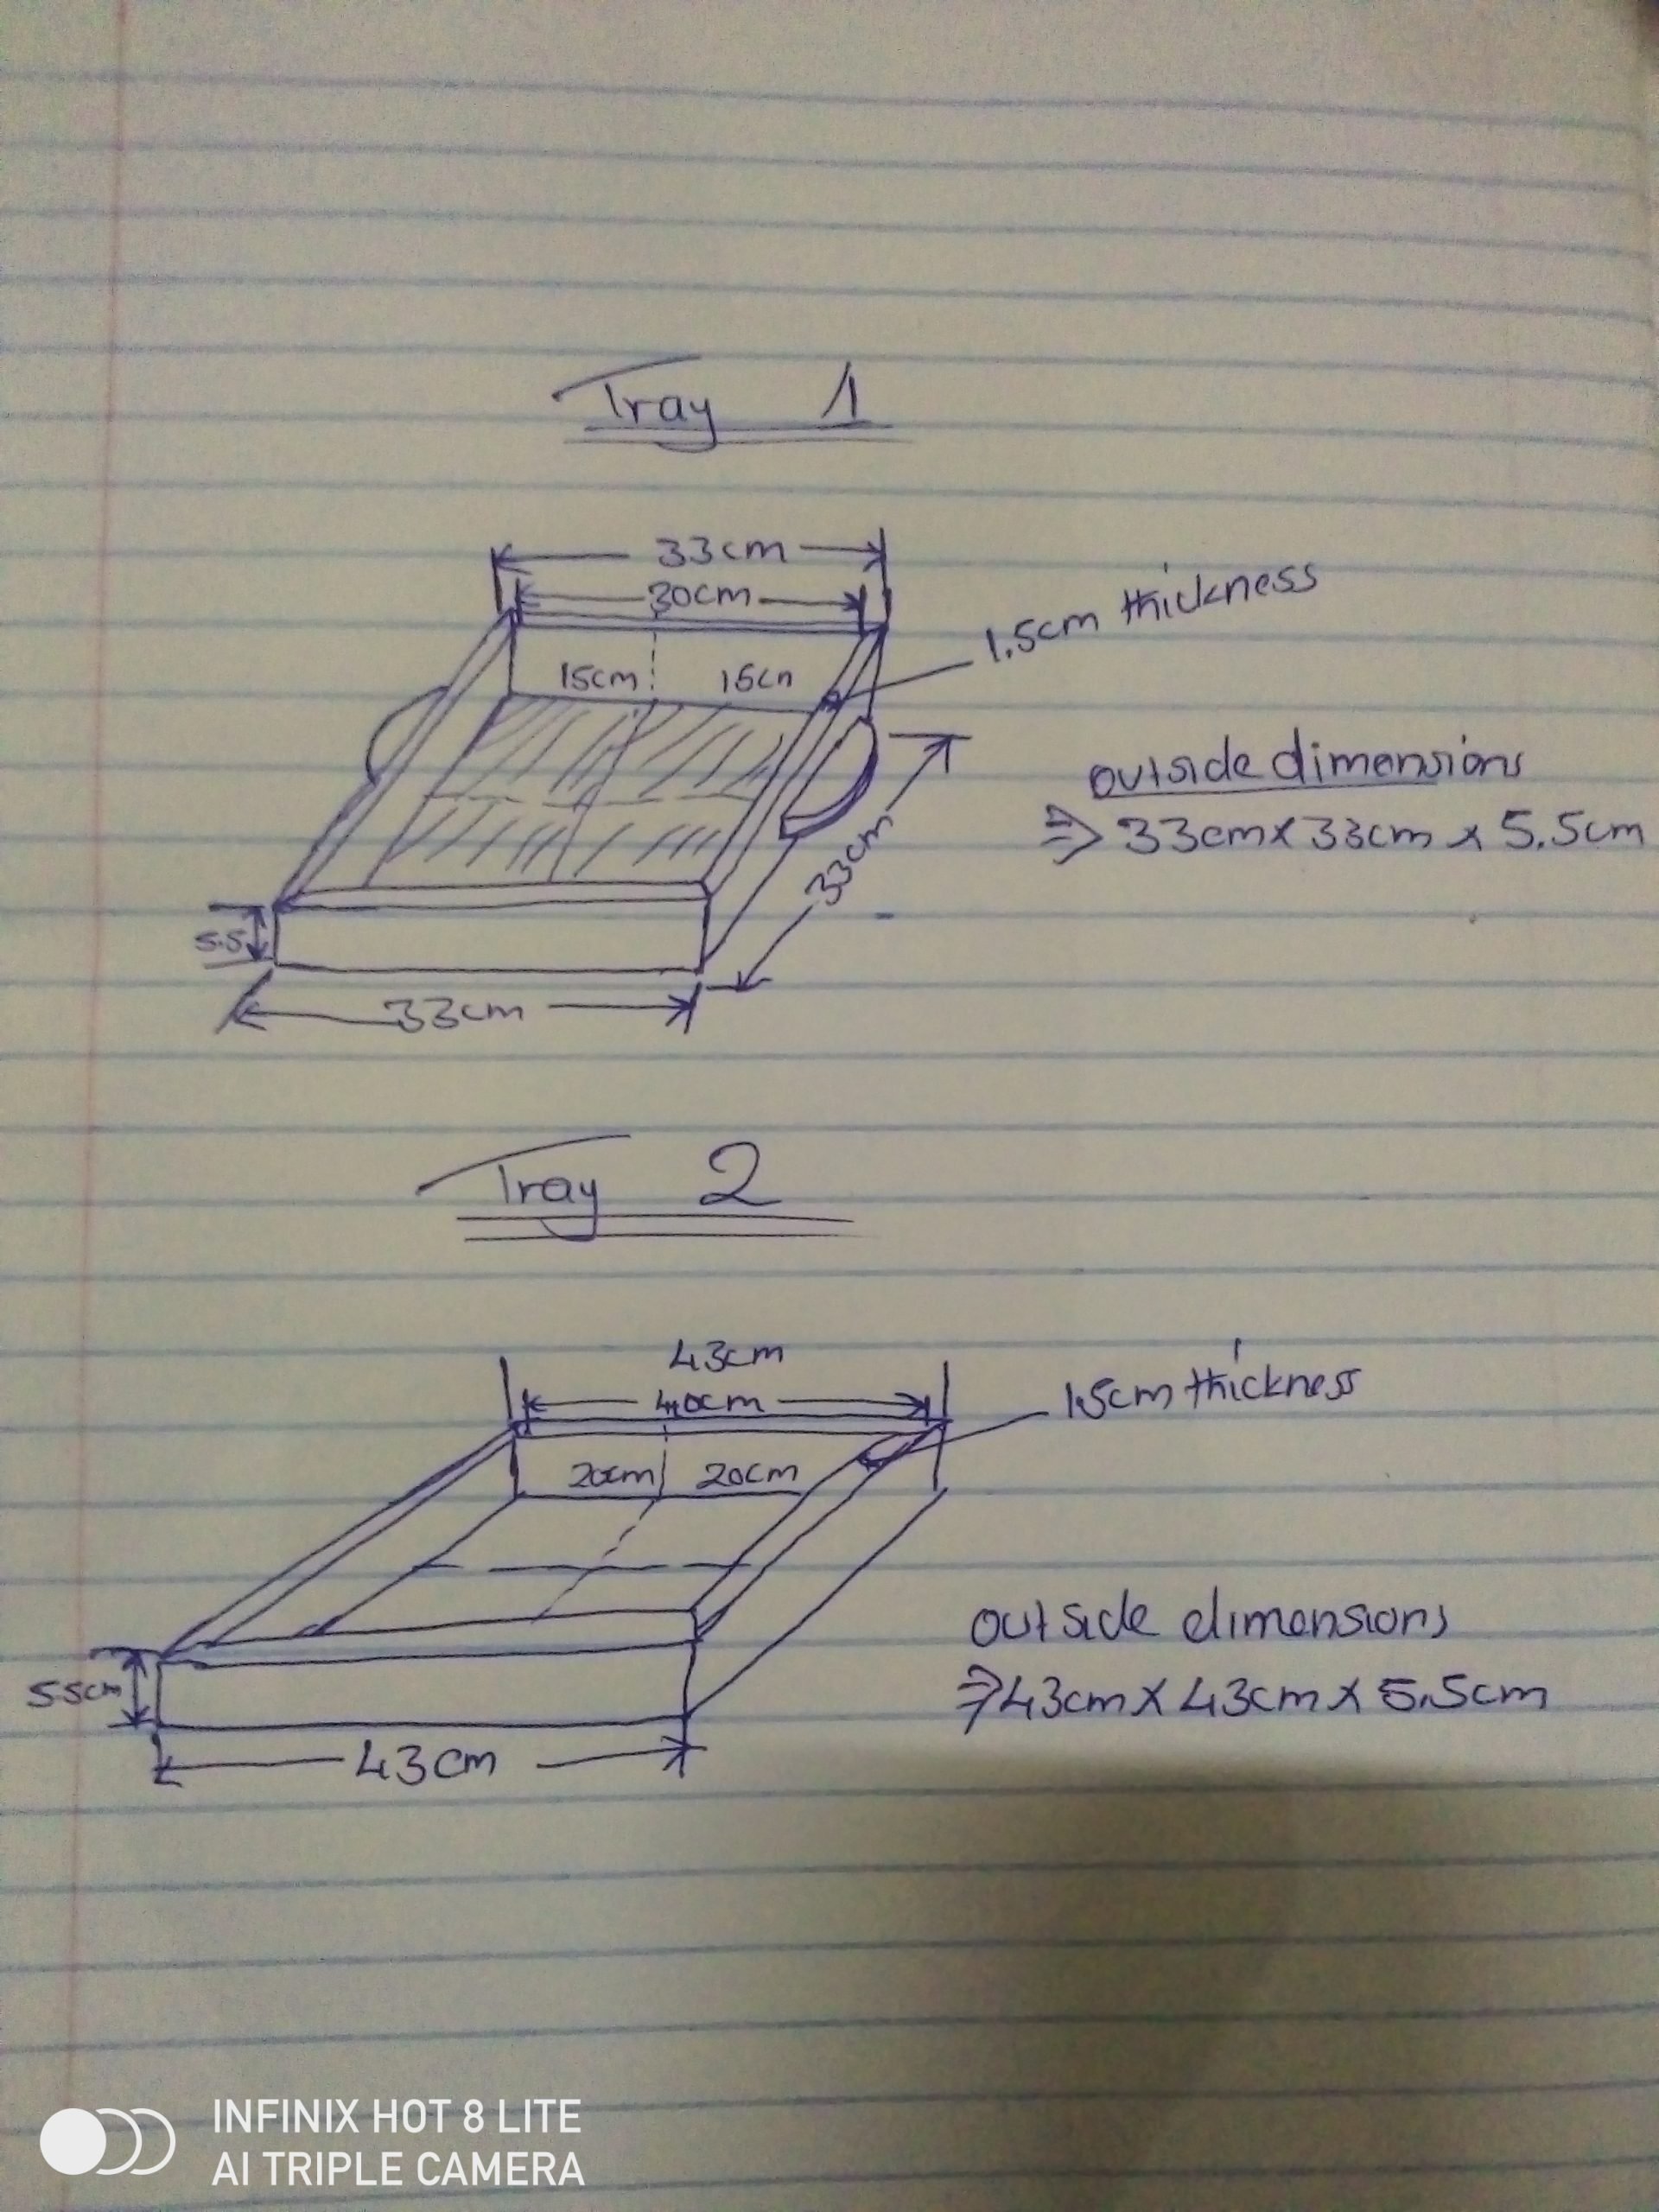 Tray 1
33cm
30cm
1.5cm thickness
15cm
15cm
outside dimensions
⇒ 33cm x 33cm x 5.5cm
33cm
5.5
33cm
Tray 2
43cm
40cm
1.5cm thickness
20cm
20cm
outside dimensions
⇒ 43cm x 43cm x 5.5cm
5.5cm
43cm
INFINIX HOT 8 LITE
AI TRIPLE CAMERA